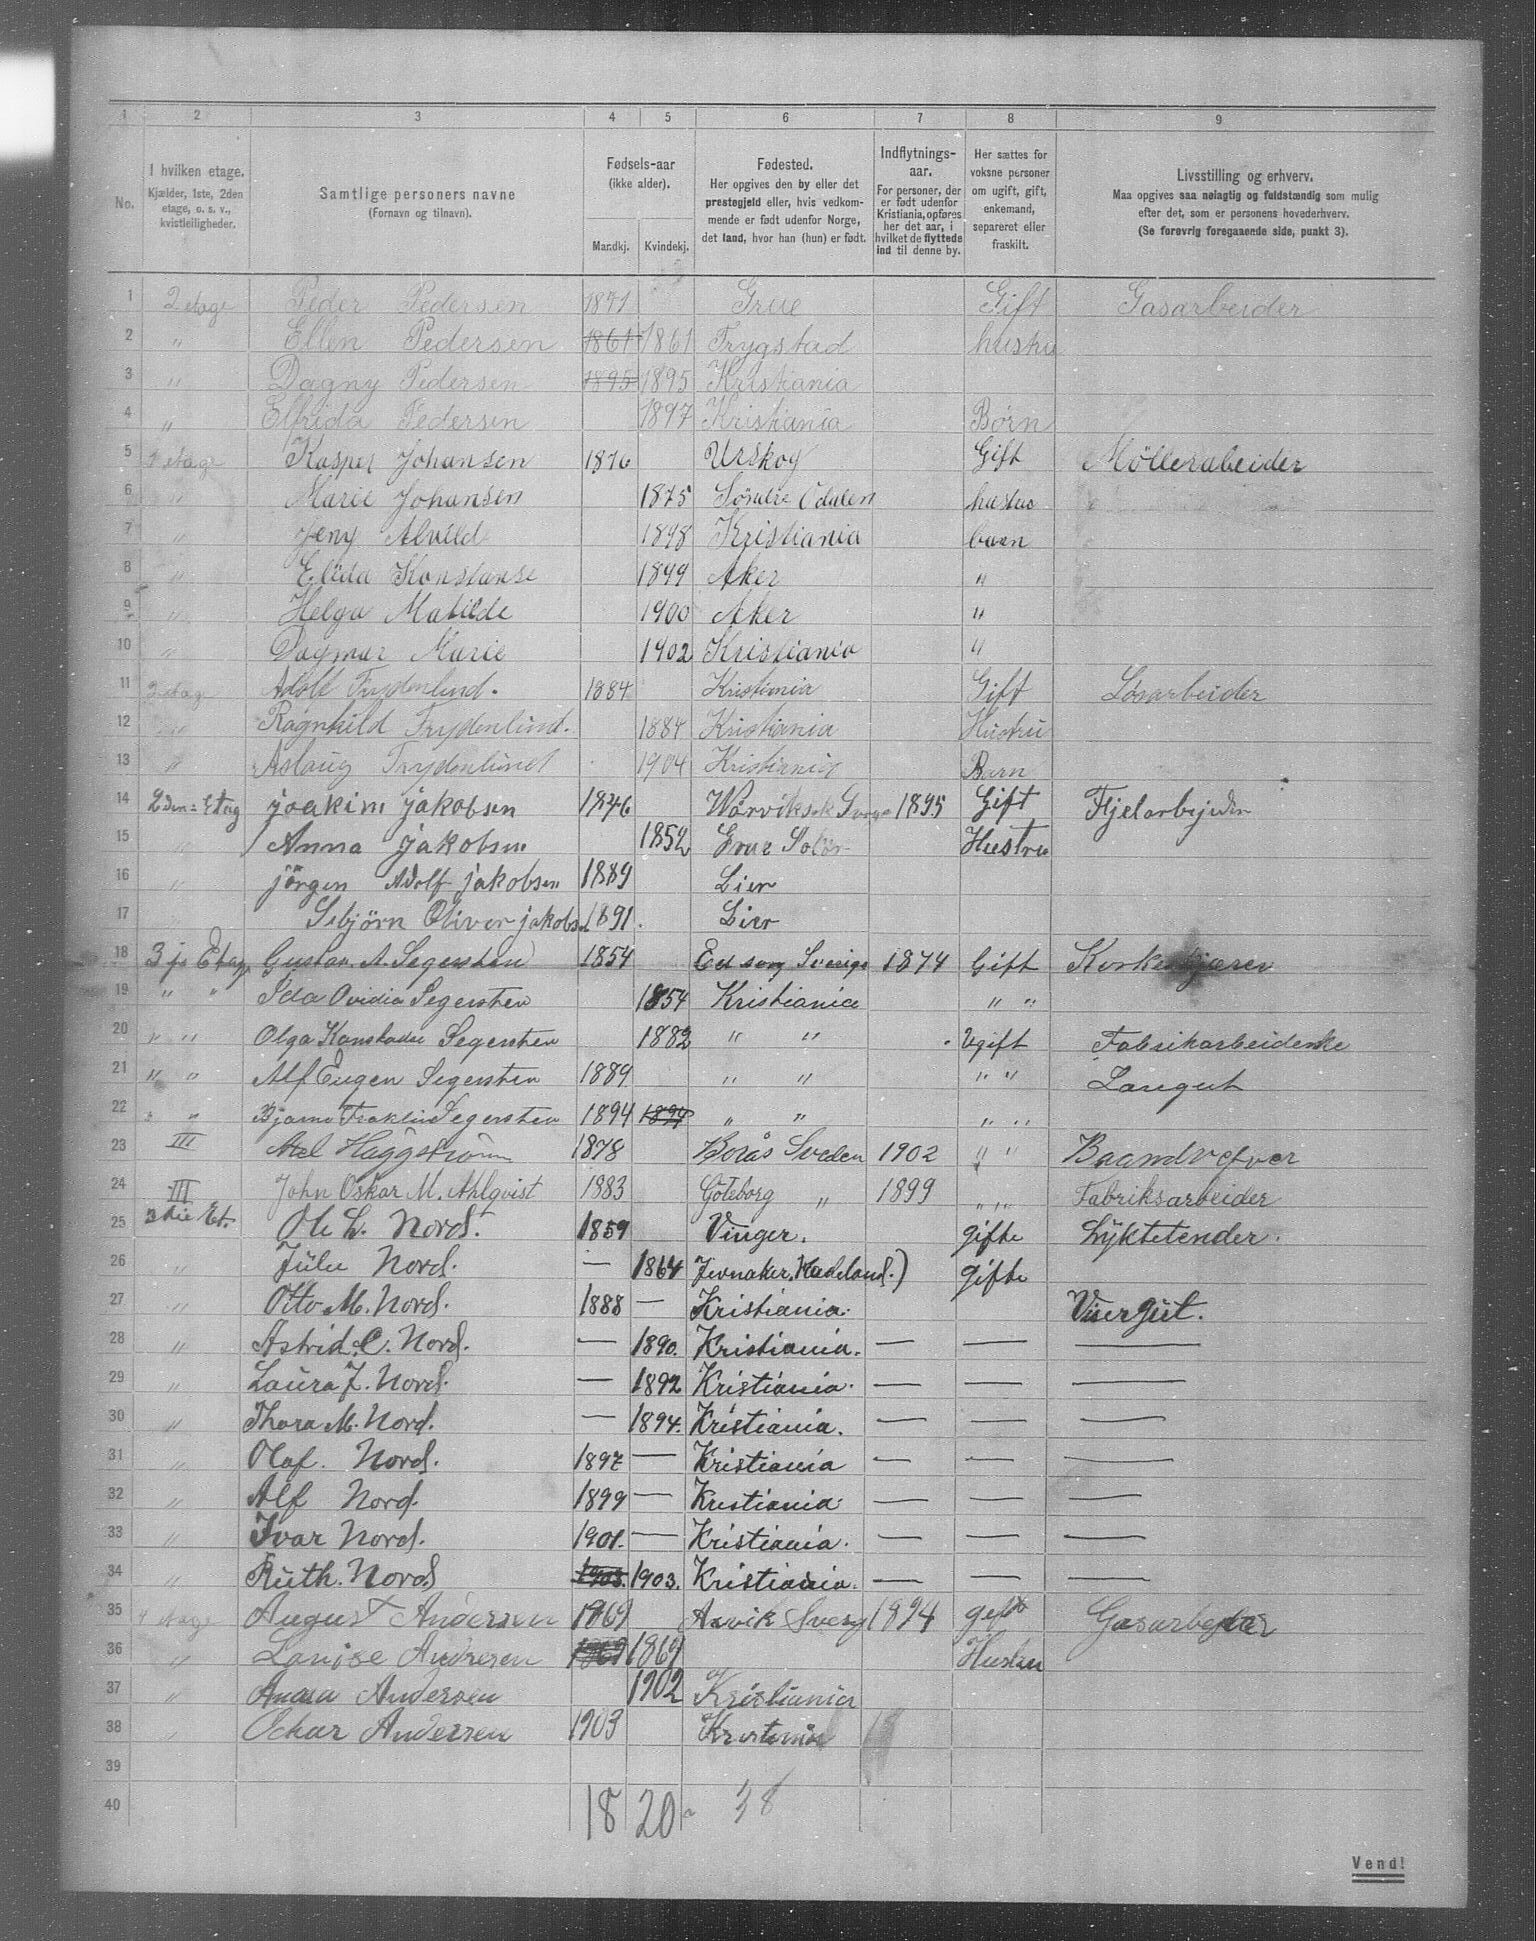 1 2 3 4 5 6 7 8 9
No.
I hvilken etage.
Kjælder, 1ste, 2den
etage, o. s. v.,
kvistleiligheder.
Samtlige personers navne
(Fornavn og tilnavn).
Fødsels-aar
(ikke alder).
Mandkj. Kvindekj.
Fødested.
Her opgives den by eller det
prestegjeld eller, hvis vedkom-
mende er født udenfor Norge,
det land, hvor han (hun) er født.
Indflytnings-
aar.
For personer, der
er født udenfor
Kristiania, opføres
her det aar, i
hvilket de flyttede
ind til denne by.
Her sættes for
voksne personer
om ugift, gift,
enkemand,
separeret eller
fraskilt.
Livsstilling og erhverv.
Maa opgives saa nøiagtig og fuldstændig som mulig
efter det, som er personens hovederhverv.
(Se forøvrig foregaaende side, punkt 3).
1 2 etage Peder Pedersen 1871 Grue Gift Gasarbeider
2 " Ellen Pedersen 1861 1861 Trygstad hustru
3 " Dagny Pedersen 1895 1895 Kristiania
4 " Elfrida Pedersen 1897 Kristiania Børn
5 etage Kasper Johansen 1876 Urskog Gift Möllerabeider
6 " Marie Johansen 1875 Söndre Odalen hustru
7 " Jeny Alvild 1898 Kristiania barn
8 " Elida Konstanse 1899 Aker "
9 " Helga Matilde 1900 Aker "
10 " Dagmar Marie 1902 Kristiania "
11 2 etage Adolf Frydenlund. 1884 Kristiania Gift Løsarbeider
12 " Ragnhild Frydenlund. 1884 Kristiania Hustru
13 " Aslaug Frydenlund 1904 Kristiania Barn
14 2den Etag joakim jakobsen 1846 1895 Gift Fjelarbejder
15 " Anna jakobsen 1852 Grue Solør Hustru
16 " jörgen Adolf jakobsen 1889 Lier
17 Sebjörn Oliver jakobsen 1891. Lier
18 3je Etage Gustav. A. Segersten 1854 Ed Sverige 1874 Gift
19 " " Ida Ovidia Segersten 1854 Kristiania " "
20 " " Olga Segersten 1882 " " Ugift Fabrikarbeiderske
21 " " Alf Eugen Segersten 1889 " " " "
22 " " Bjarne Segersten 1894 1894 " " " "
23 III Axel Häggström 1878 Borås Sveden 1902 " " Baandvefver
24 III John Oskar M. Ahlqvist 1883 Göteborg " 1899 " " Fabriksarbeider
25 3die Et. Ole L. Nord. 1859 Vinger. gifte Lyktetender.
26 " Julie Nord. — 1864 Jevnaker. Hadeland.) gifte
27 " Otto M. Nord. 1888 — Kristiania. Visergut.
28 " Astrid. C. Nord. — 1890. Kristiania. — — —
29 " Laura J. Nord. — 1892 Kristiania. — — —
30 " Thora M. Nord. — 1894. Kristiania. — — —
31 " Olaf. Nord. 1897 — Kristiania — — —
32 " Alf Nord. 1899 — Kristiania. — — —
33 " Ivar Nord. 1901. — Kristiania. — — —
34 " Ruth. Nord 1903. 1903. Kristiania. — — —
35 4 etage August Andersen 1869 Sverig 1894 gift Gasarbeider
36 " Louise Andresen 1869 1869 Hustru
37 " Anna Andersen 1902 Kristiania
38 " Ockar Andersen 1903 Kristiania
39
40 18 20 38
Vend!